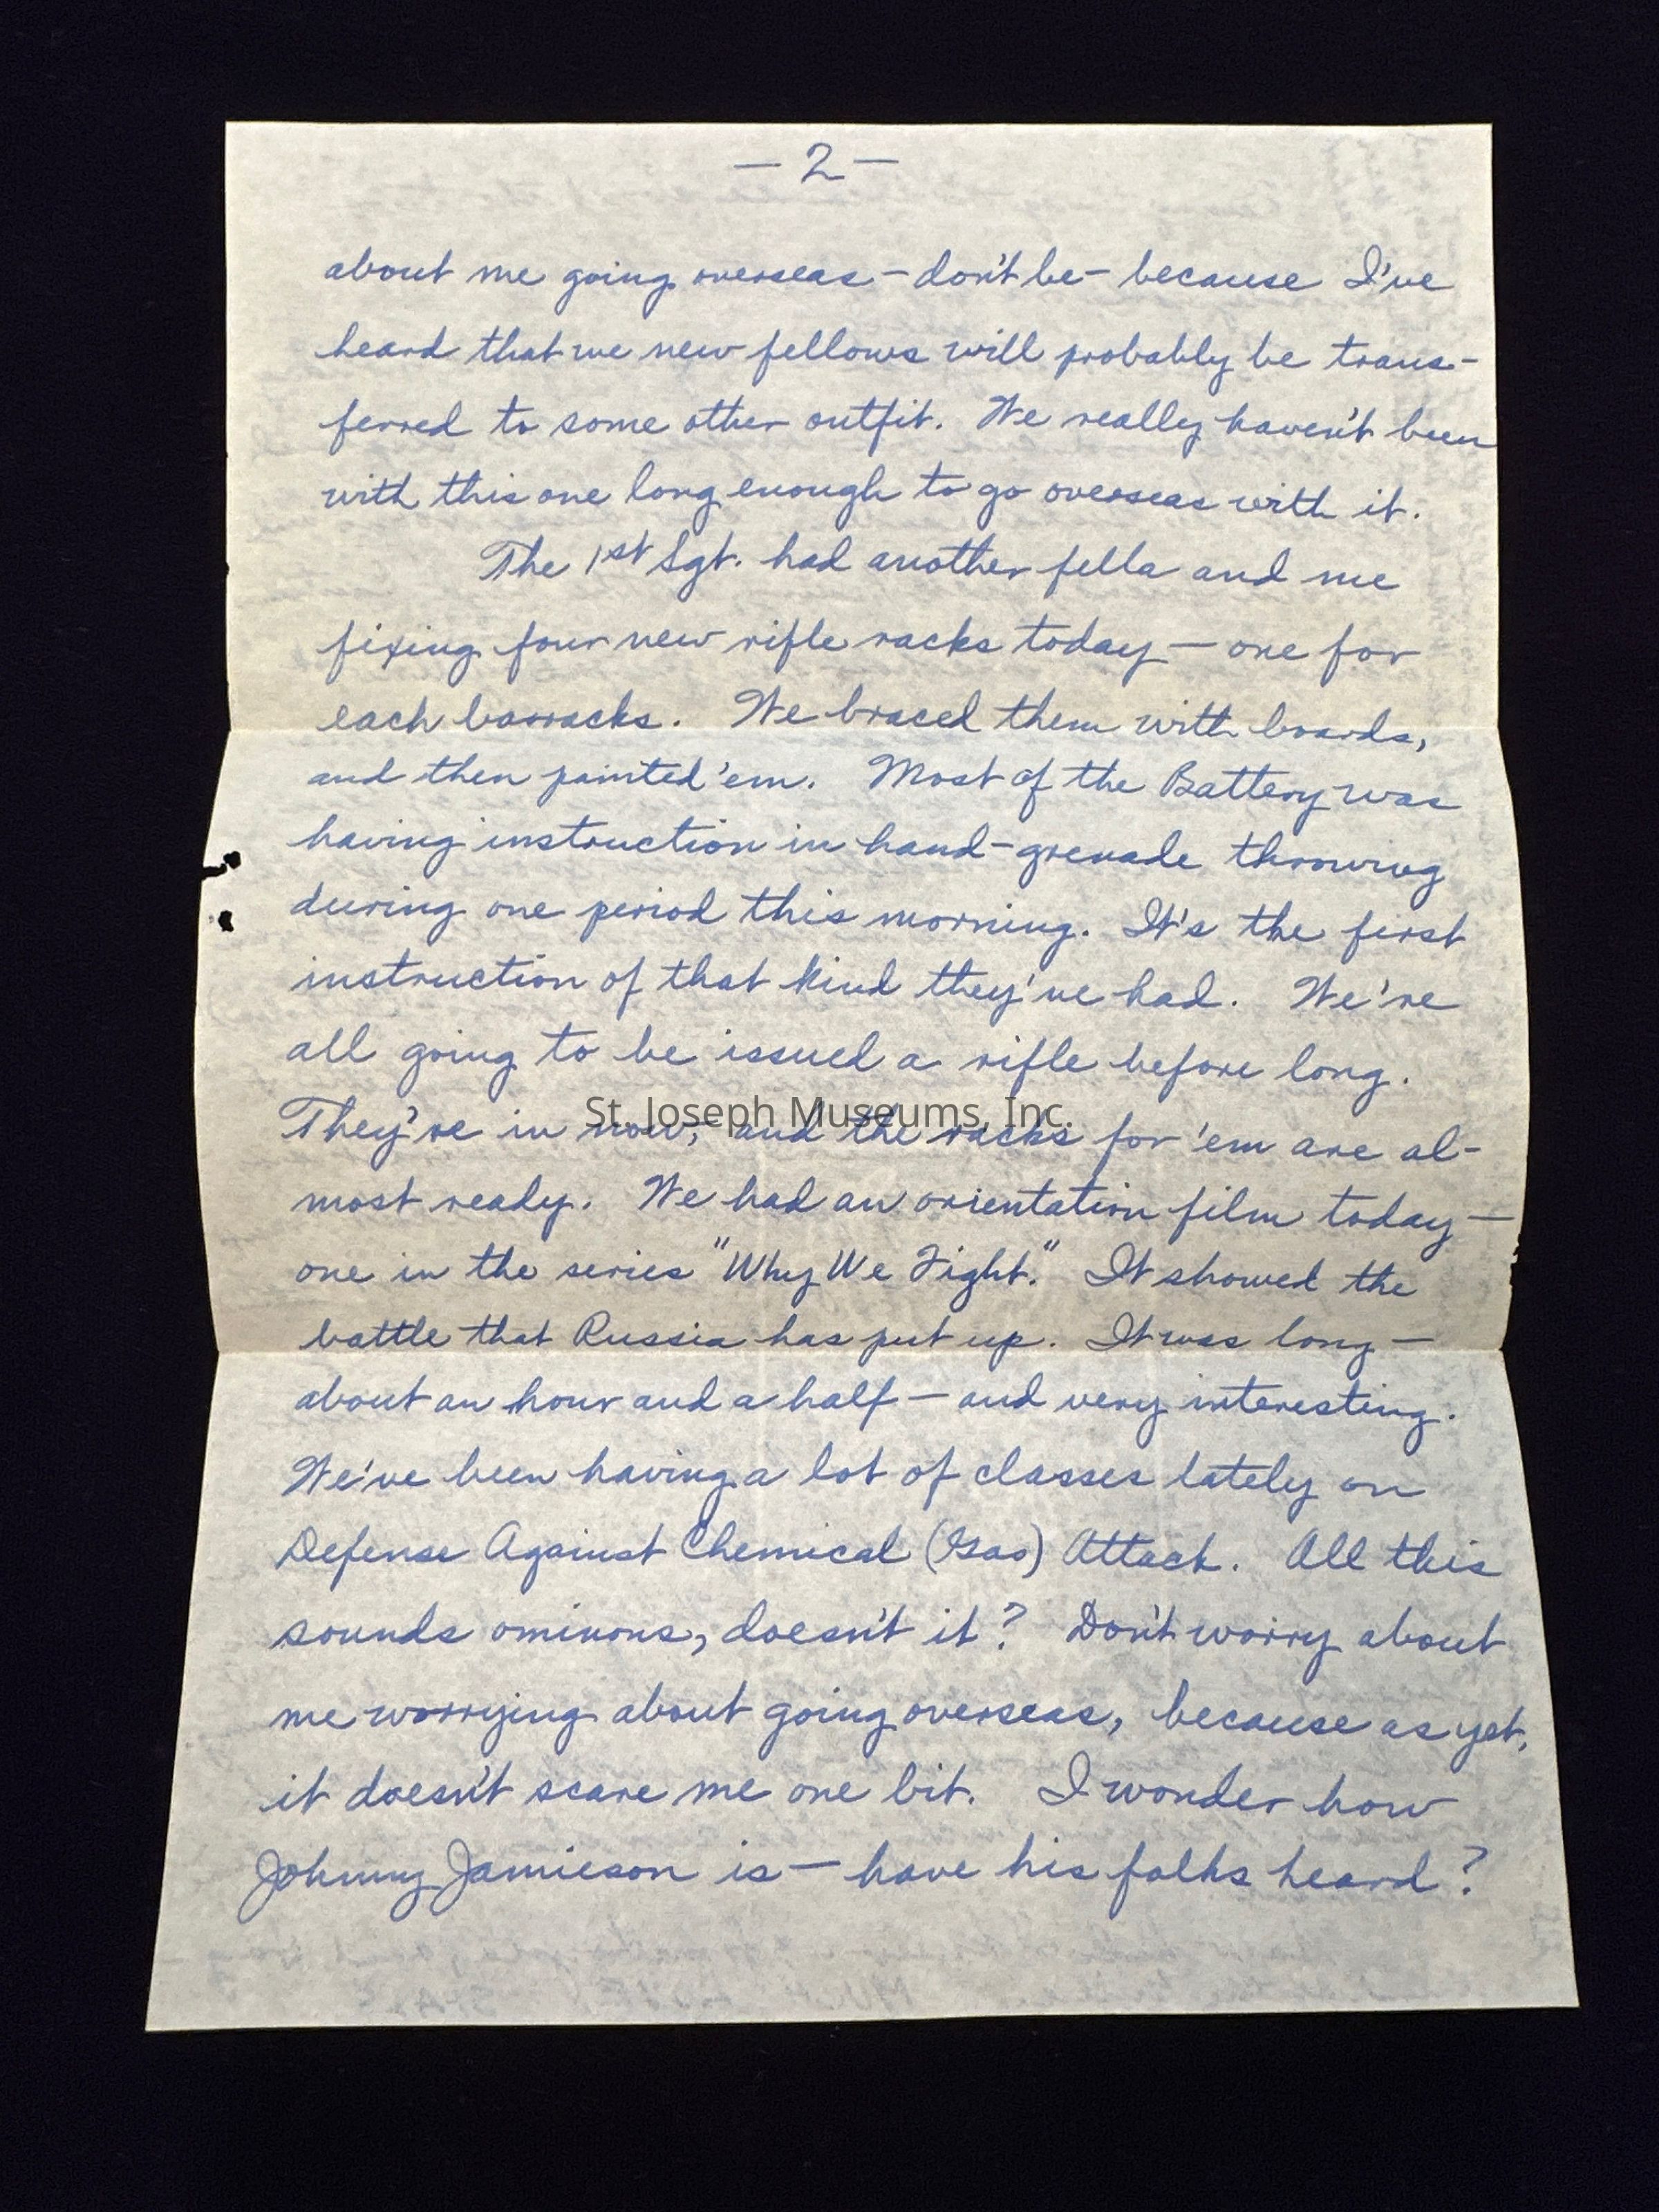 — 2 —
about me going overseas – don't be – because I've
heard that we new fellows will probably be trans-
ferred to some other outfit. We really haven't been
with this one long enough to go overseas with it.
The 1st Sgt. had another fella and me
fixing four new rifle racks today — one for
each barracks. We braced them with boards,
and then painted 'em. Most of the Battery was
having instruction in hand-grenade throwing
during one period this morning. It's the first
instruction of that kind they've had. We're
all going to be issued a rifle before long.
They're in now, and the racks for 'em are al-
St. Joseph Museums, Inc.
most ready. We had an orientation film today —
one in the series "Why We Fight." It showed the
battle that Russia has put up. It was long —
about an hour and a half — and very interesting.
We've been having a lot of classes lately on
Defense Against Chemical (Gas) Attack. All this
sounds ominous, doesn't it? Don't worry about
me worrying about going overseas, because as yet,
it doesn't scare me one bit. I wonder how
Johnny Jamieson is — have his folks heard?